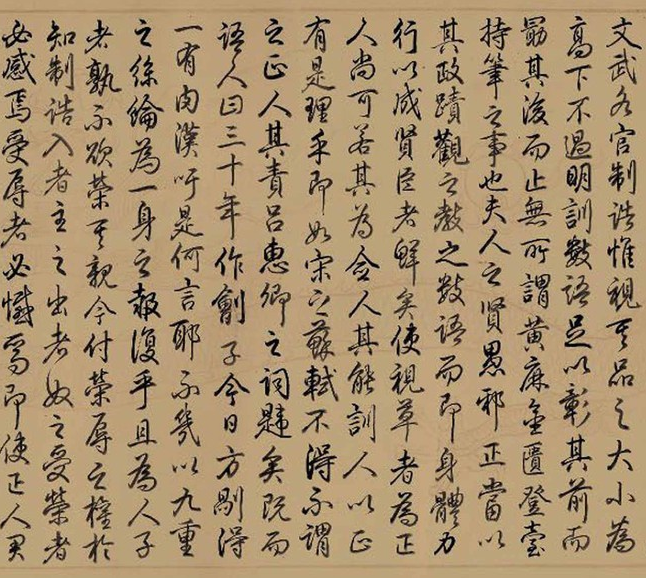 文武各官制誥惟視其品之大小為
高下不過明訓數語足以彰其前而
勗其後而止無所謂黃麻金匱登臺
持筆之事也夫人之賢愚邪正當以
其政蹟觀之教之數語而即身體力
行以成賢臣者鮮矣使視草者為正
人尚可若其為僉人其能訓人以正
有是理乎即如宋之蘇軾不得不謂
之正人其責呂惠卿之詞韙矣既而
語人曰三十年作劊子今日方剮得
一有肉漢吁是何言耶不幾以九重
之絲綸為一身之報復乎且為人子
者孰不欲榮其親今付榮辱之權於
知制誥入者主之出者奴之受榮者
必感焉受辱者必憾焉即使正人君